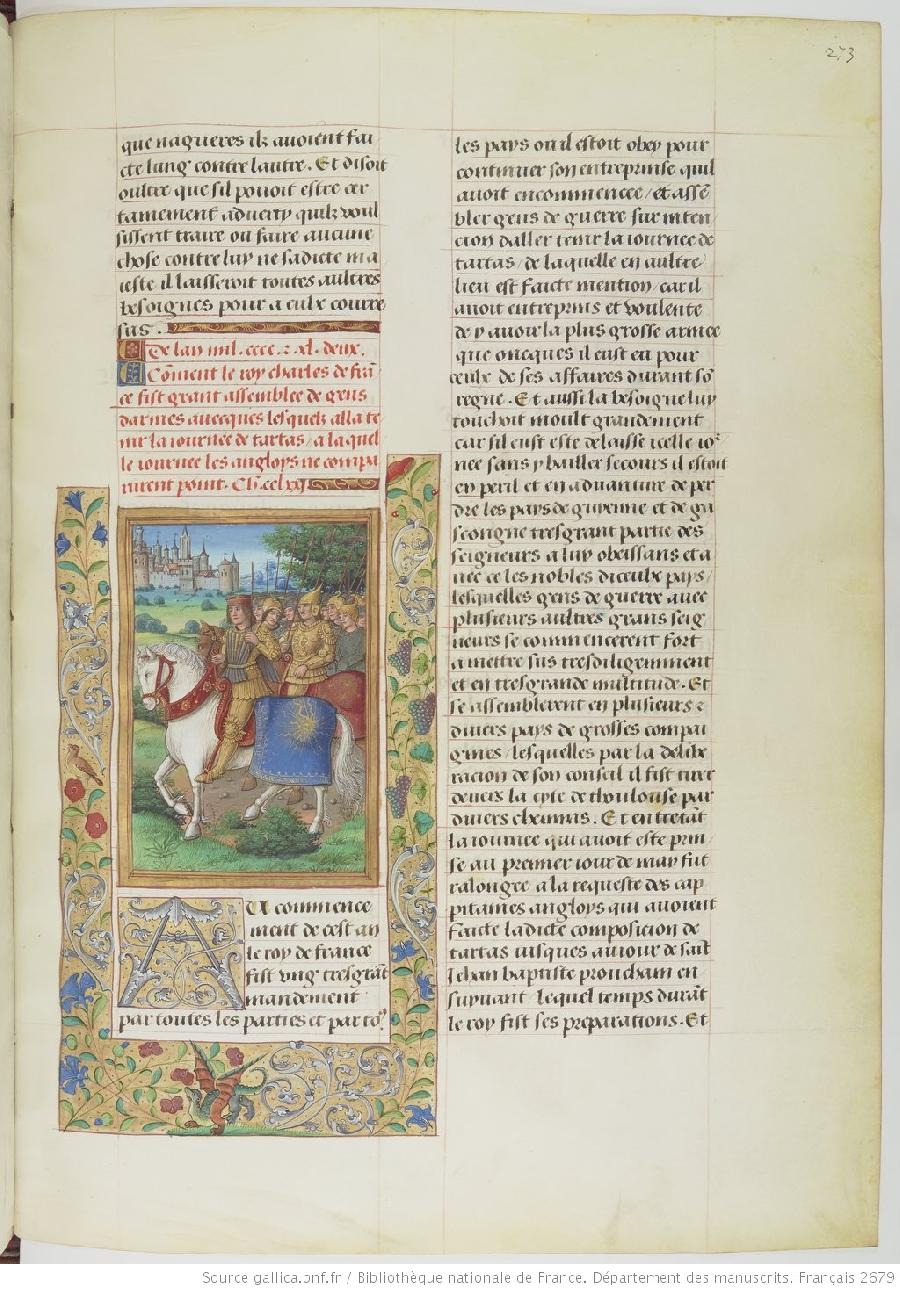 273
que nagueres ilz avoient fai
cte lung contre lautre. Et disoit
oultre que sil povoit estre cer
tainement adverty quilz voul
sissent traire ou faire aucune
chose contre luy ne sadicte ma
ieste il laisseroit toutes aultres
besoignes pour a eulx courre
sus.
De lan mil. cccc. ⁊ xl. deux.
Cōment le roy charles de frā
ce fist grant assemblee de gens
darmes avecques lesquelz alla te
nir la iournee de tartas / a la quel
le iournee les angloys ne compa
rurent point. Ch. cclxxj
AU commence
ment de cest an
le roy de france
fist ung tresgrāt
mandement
par toutes les parties et par to9
les pays ou il estoit obey pour
continuer son entreprinse quil
avoit encommencee / et assē
bler gens de guerre sur inten
cion daller tenir la iournee de
tartas / de laquelle en aultre
lieu est faicte mention / car il
avoit entreprins et voulente
de y avoir la plus grosse armee
que oncques il eust eu pour
ceulx de ses affaires durant sō
regne. Et aussi la besoigne luy
touchoit moult grandement
car sil eust este delaisse icelle io
nee sans y bailler secours il estoit
en peril et en advanture de per
dre les pays de guyenne et de ga
scongne tresgrant partie des
seigneurs a luy obeissans et a
vec ce les nobles diceulx pays /
lesquelles gens de guerre avec
plusieurs aultres grans seig
neurs se commencerent fort
a mettre sus tresdiligemment
et en tresgrande multitude. Et
se assemblerent en plusieurs ⁊
divers pays de grosses compai
gnies / lesquelles par la delibe
racion de son conseil il fist tirer
devers la cyte de thoulouse par
divers chemins. Et entretāt
la iournee qui avoit este prin
se au premier iour de may fut
ralongee a la requeste des cap
pitaines angloys qui avoient
faicte ladicte composicion de
tartas iusques au iour de sait
Jehan baptiste prouchain en
suyvant lequel temps durāt
le roy fist ses preparations. Et
Source gallica.bnf.fr / Bibliothèque nationale de France. Département des manuscrits. Français 2679